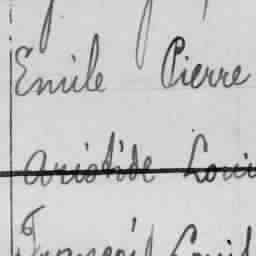 Emile Pierre
Aristide Loui
François Louis